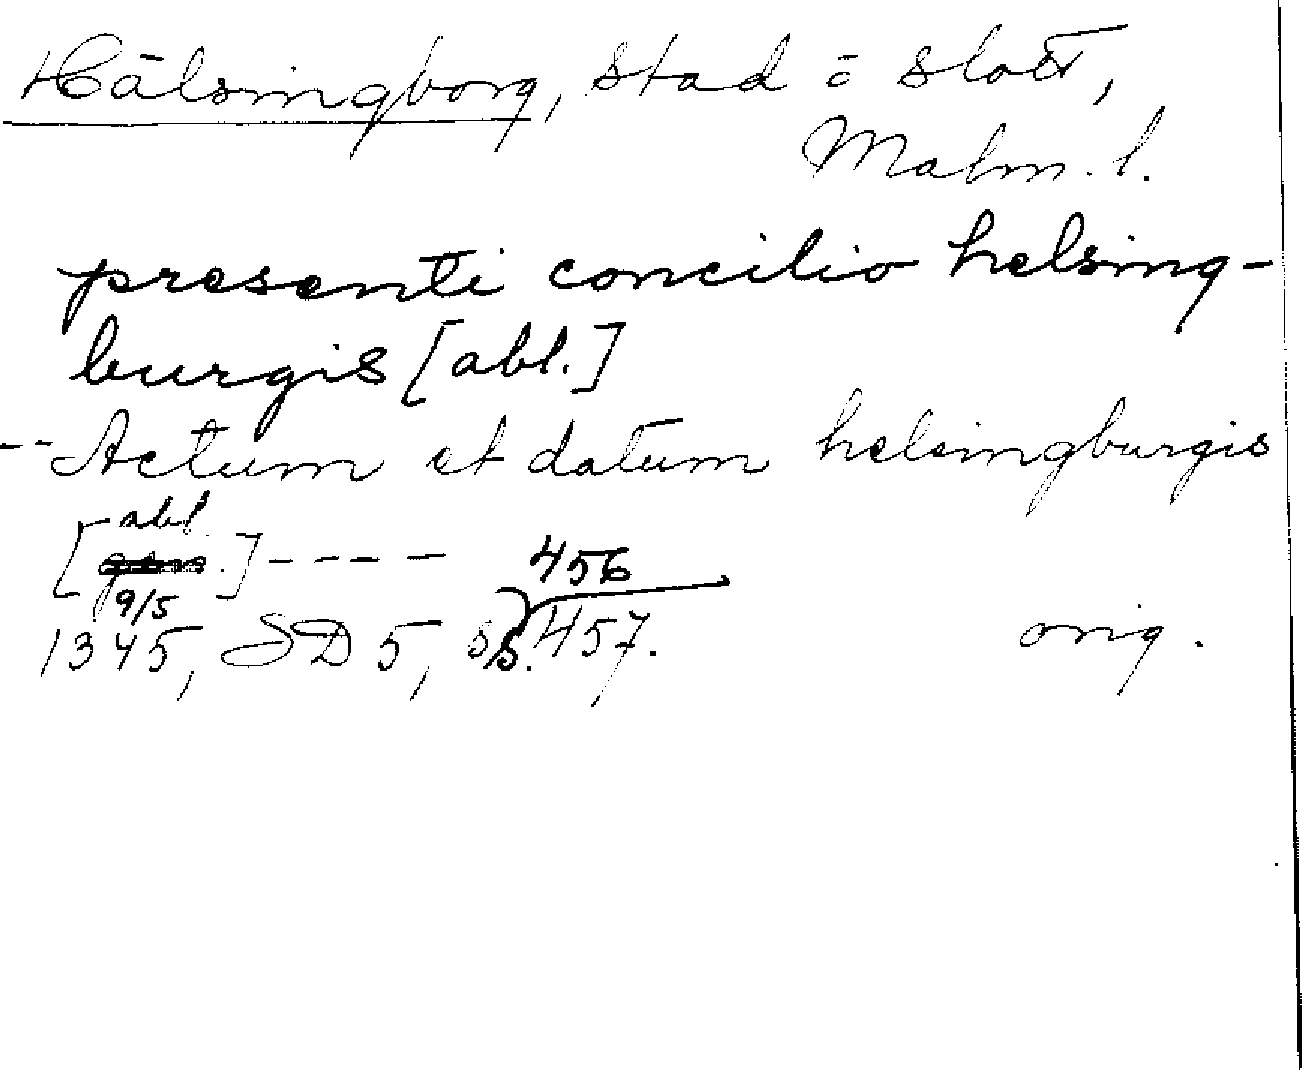 Hälsingborg, stad o slott,
Malm. l.
presenti concilio helsing-
burgis [abl.]
-- Actum et datum helsingburgis
abl.
[ ] ----
456
9/5
1345, SD 5, ss. 457. orig.